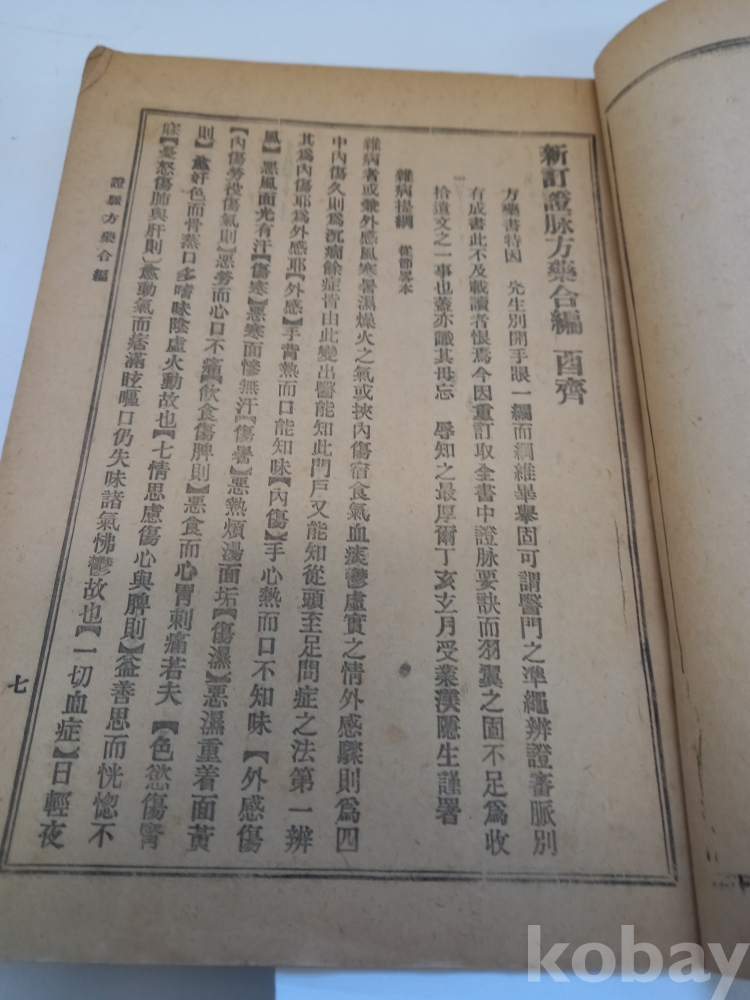 新訂證脉方藥合編 酉齊
方藥書特因 先生別開手眼一綱而綱維畢舉固可謂醫門之準繩辨證審脈別
有成書此不及載讀者恨焉今因重訂取全書中證脉要訣而羽翼之固不足爲收
拾遺文之一事也蓋亦識其毋忘 辱知之最厚爾丁亥玄月受業漢隱生謹署
雜病提綱 從節畧本
雜病者或兼外感風寒暑濕燥火之氣或挾內傷宿食氣血痰鬱虛實之情外感驟則爲四
中內傷久則爲沉痼餘症皆由此變出醫能知此門戶又能知從頭至足問症之法第一辨
其爲內傷耶爲外感耶【外感】手背熱而口能知味【內傷】手心熱而口不知味【外感傷
風】惡風面光有汗【傷寒】惡寒面慘無汗【傷暑】惡熱煩湯面垢【傷濕】惡濕重着面黃
【內傷勞役傷氣則】惡勞而心口不痛【飮食傷脾則】惡食而心胃刺痛若夫【色慾傷腎
則】愈好色而骨蒸口多嗜味陰虛火動故也【七情思慮傷心與脾則】益善思而恍惚不
寐【憂怒傷肺與肝則】愈動氣而痞滿眩嘔口仍失味諸氣怫鬱故也【一切血症】日輕夜
證脈方藥合編
七
kobay